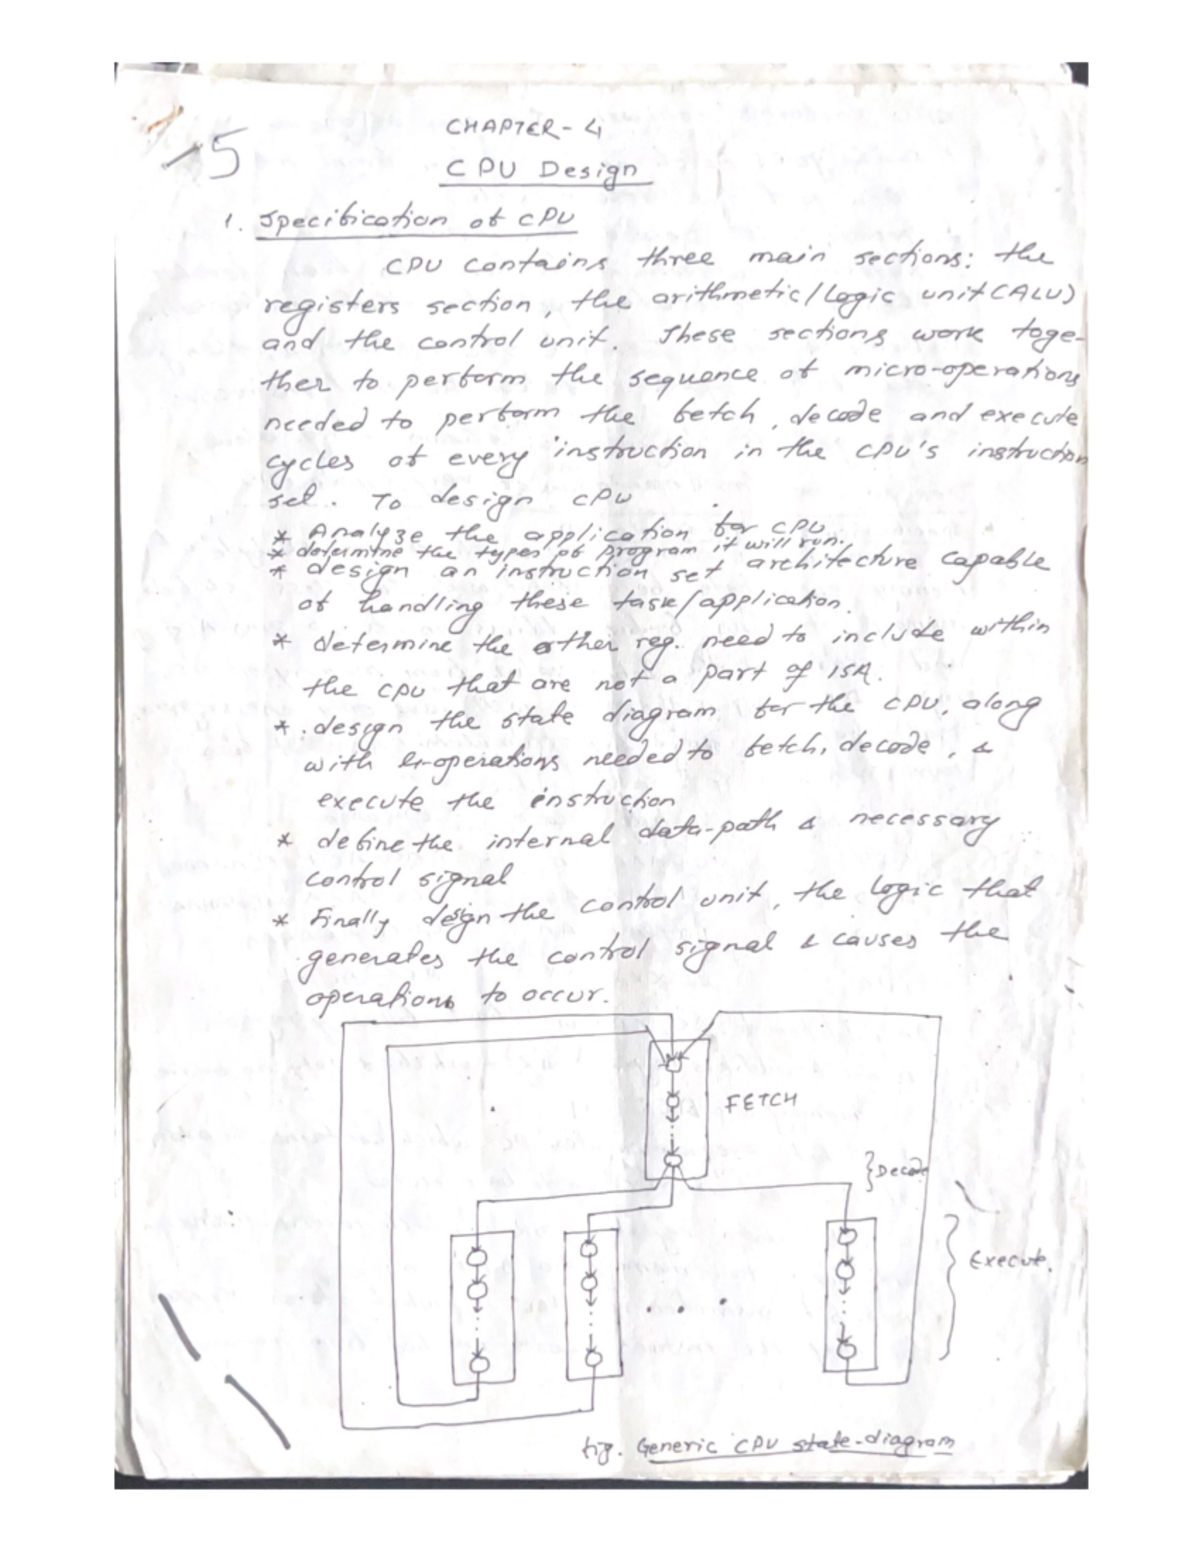 5
CHAPTER - 4
CPU Design
1. Specification of CPU
CPU contains three main sections: the
registers section, the arithmetic/Logic unit (ALU)
and the control unit. These sections work toge-
ther to perform the sequence of micro-operations
needed to perform the fetch, decode and execute
cycles of every instruction in the CPU's instruction
set. To design CPU
* Analyze the application for CPU
* determine the types of program it will run.
* design an instruction set architecture capable
of handling these task/application.
* determine the other reg. need to include within
the CPU that are not a part of ISA.
* design the state diagram for the CPU, along
with μ-operations needed to fetch, decode, &
execute the instruction
* define the internal data-path & necessary
control signal
* Finally design the control unit, the logic that
generates the control signal & causes the
operations to occur.
FETCH
Decode
Execute.
fig. Generic CPU state-diagram